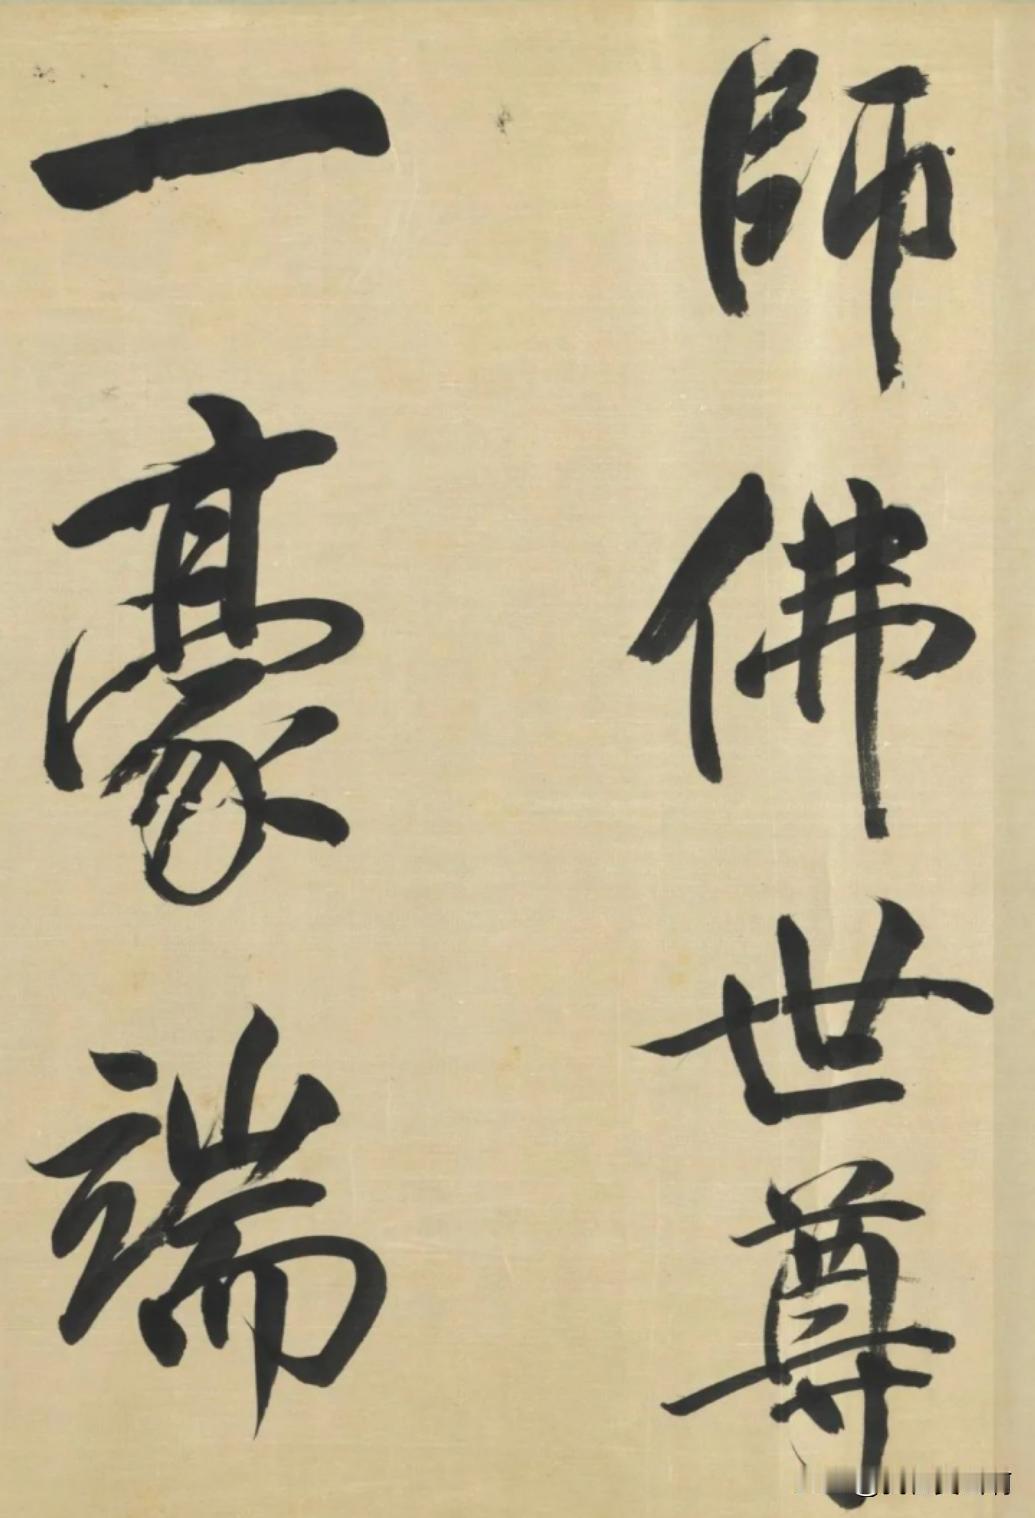 師佛世尊
一豪端